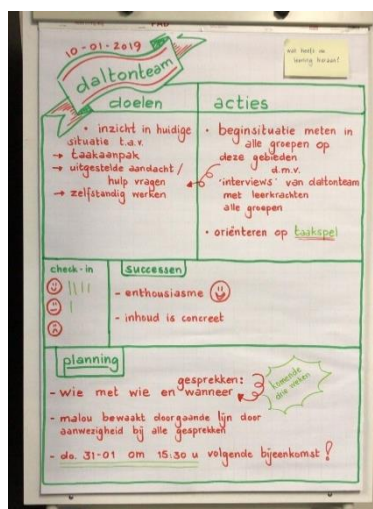 10-01-2019
daltonteam
wat heeft de
leerling hieraan?
doelen
• inzicht in huidige
situatie t.a.v.
→ taakaanpak
→ uitgestelde aandacht/
hulp vragen
→ zelfstandig werken
acties
• beginsituatie meten in
alle groepen op
deze gebieden
d.m.v.
'interviews' van daltonteam
met leerkrachten
alle groepen
• oriënteren op taakspel
check-in
successen
- enthousiasme
- inhoud is concreet
planning
gesprekken:
- wie met wie en wanneer
komende
drie weken
- malou bewaakt doorgaande lijn door
aanwezigheid bij alle gesprekken
- do. 31-01 om 15:30 u volgende bijeenkomst!